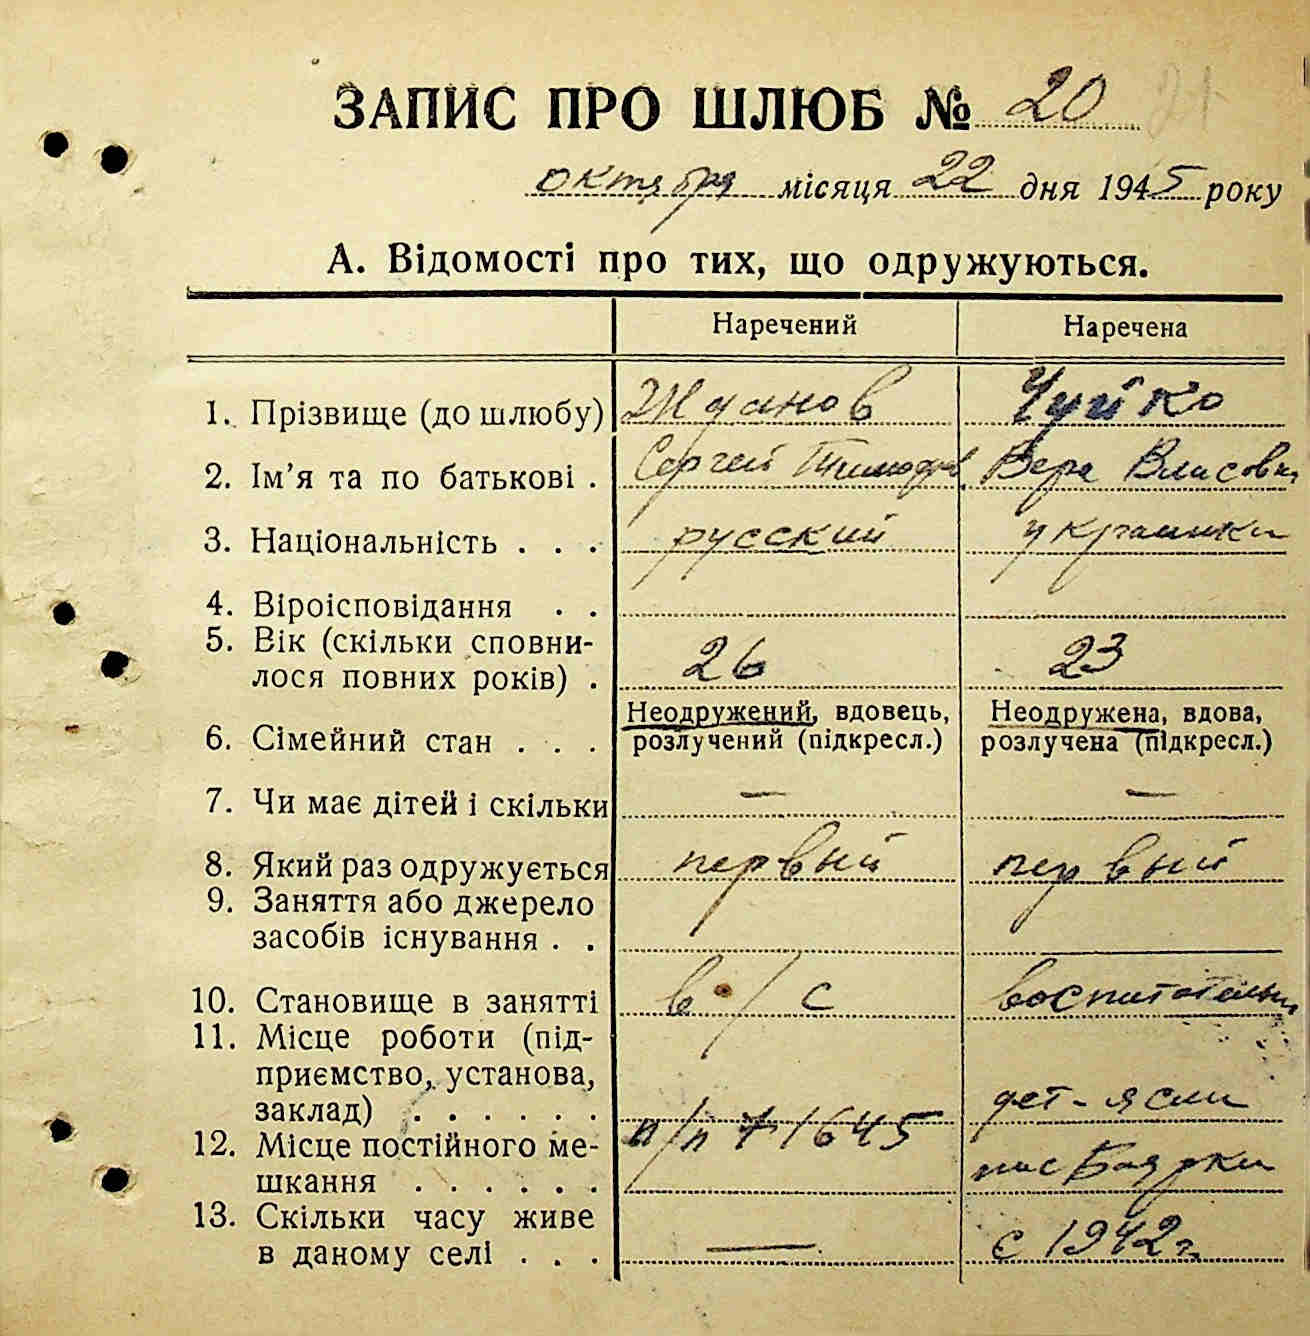 ЗАПИС ПРО ШЛЮБ № 20 21
октября місяця 22 дня 1945 року
А. Відомості про тих, що одружуються.
Наречений Наречена
1. Прізвище (до шлюбу) Жданов Чуйко
2. Ім’я та по батькові . Сергей Тимофеев. Вера Власовна
3. Національність . . . русский украинка
4. Віроісповідання . .
5. Вік (скільки сповни-
лося повних років) . 26 23
Неодружений, вдовець, Неодружена, вдова,
6. Сімейний стан . . . розлучений (підкресл.) розлучена (підкресл.)
7. Чи має дітей і скільки — —
8. Який раз одружується первый первый
9. Заняття або джерело
засобів існування . .
10. Становище в занятті в/с
11. Місце роботи (під-
приємство, установа,
заклад) . . . . . . дет-ясли
12. Місце постійного ме- п/п 1645
шкання . . . . . . пос Боярки
13. Скільки часу живе
в даному селі . . . — с 1942 г.